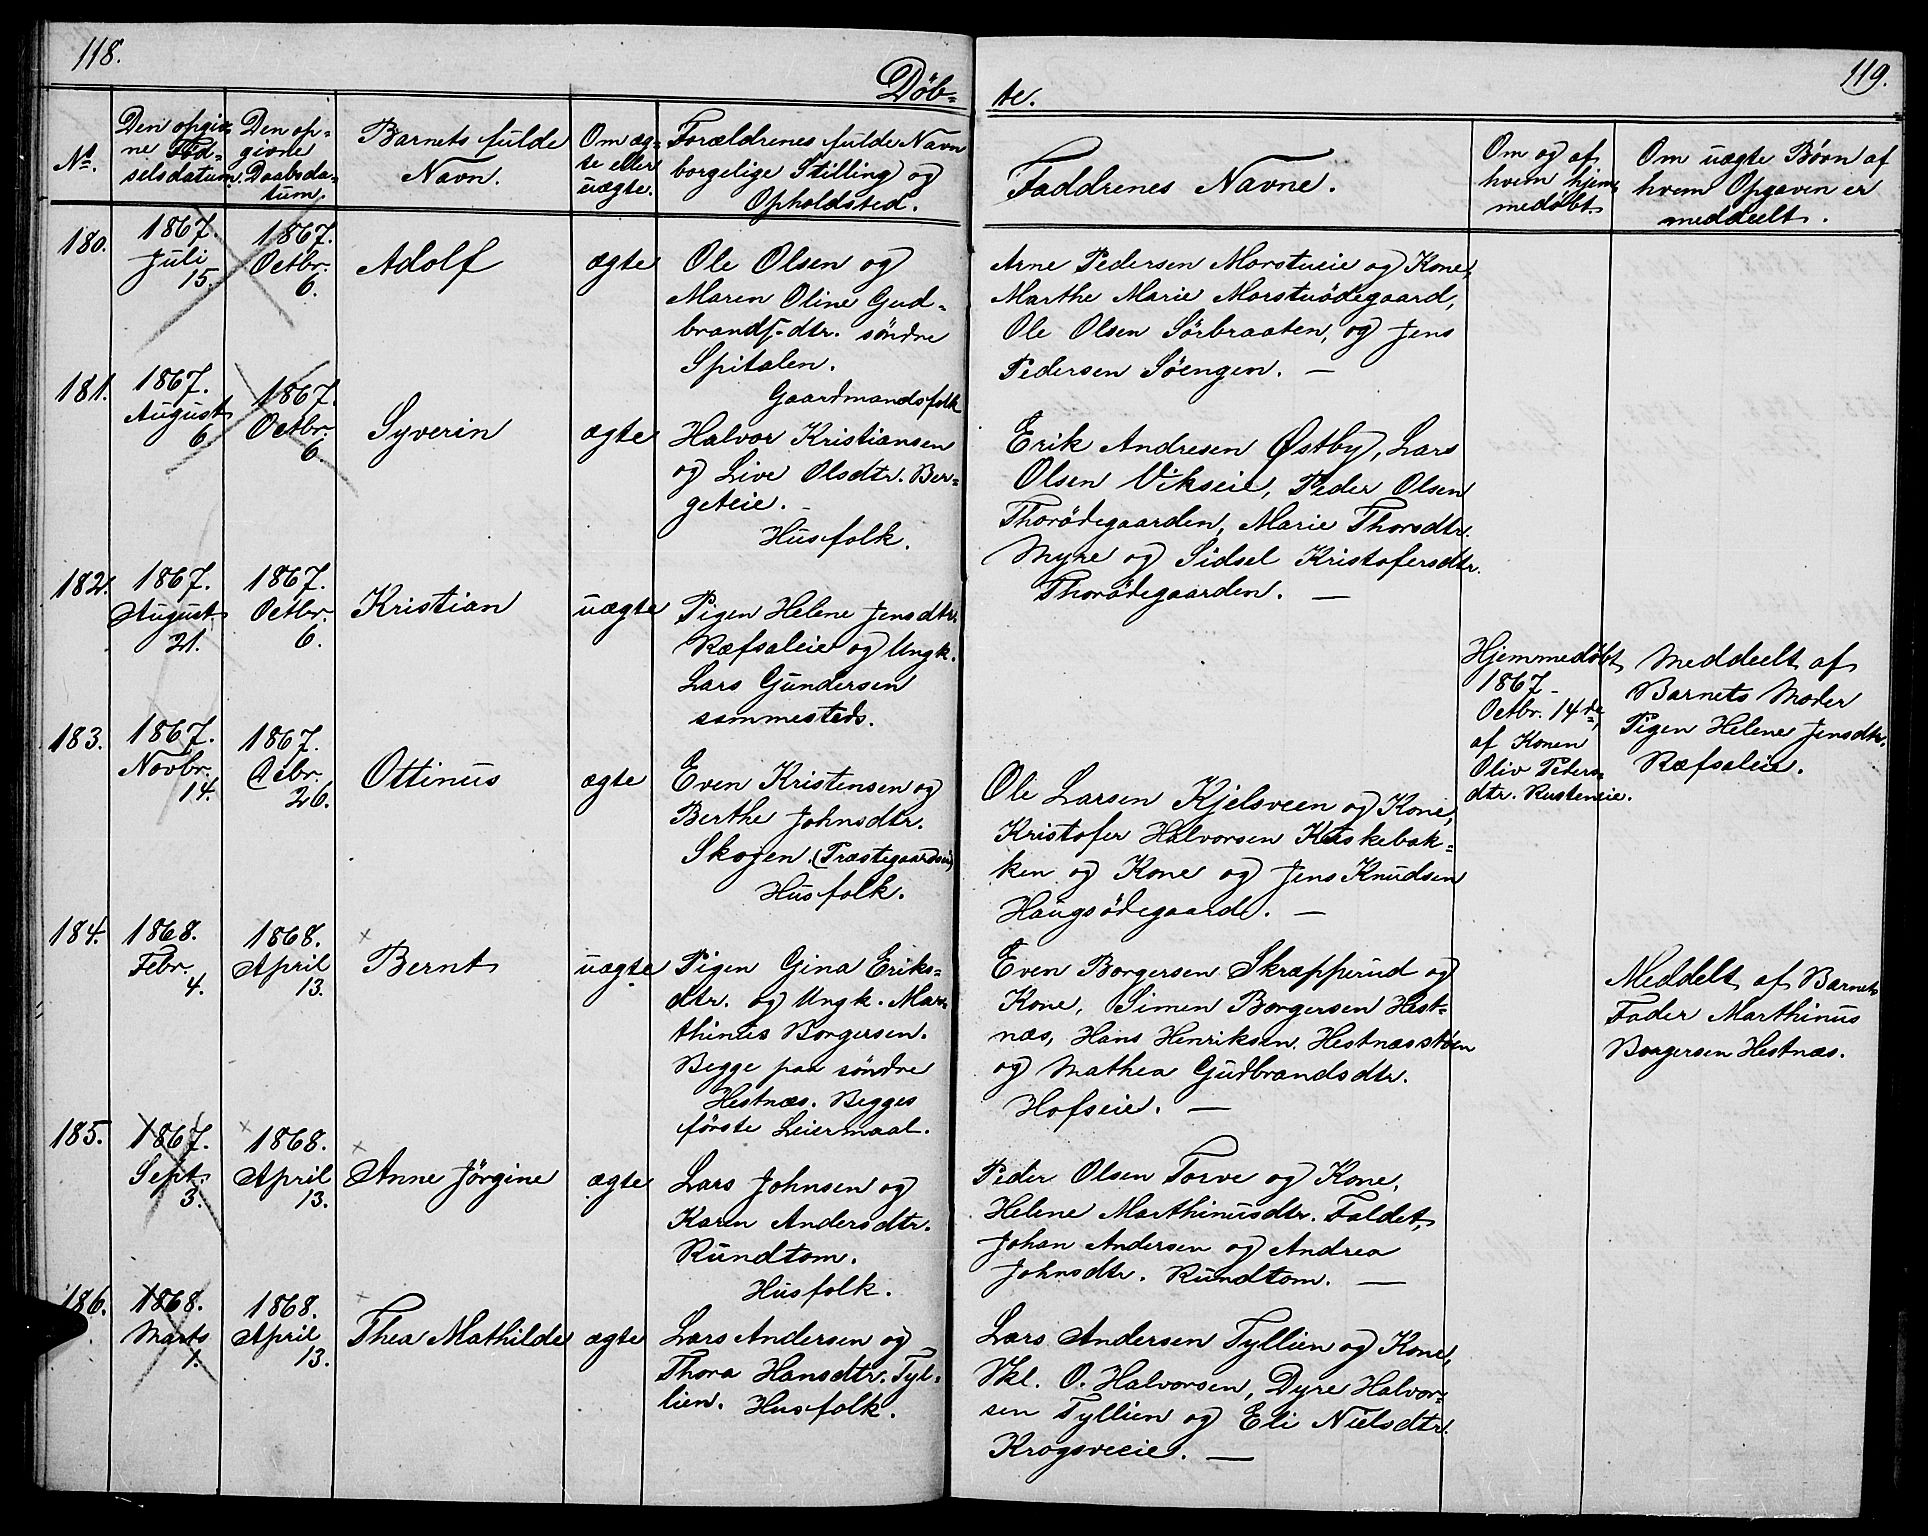 118.
119.
Döb-
te.
Nº.
Den opgiv-
ne Föd-
selsdatum.
Den op-
givne
Daabsda-
tum.
Barnets fulde
Navn.
Om æg-
te eller
uægte.
Forældrenes fulde Navn
borgelige Stilling og
Opholdsted.
Faddrenes Navne.
Om og af
hvem hjem-
medøbt.
Om uægte Børn af
hvem Opgaven er
meddeelt.
180.
1867.
Juli
15.
1867.
Octbr.
6.
Adolf
ægte
Ole Olsen og
Maren Oline Gud-
brandsdtr. söndre
Spitalen.
Gaardmandsfolk
Arne Pedersen Morstueie og Kone,
Marthe Marie Morstuödegaard,
Ole Olsen Sörbraaten, og Jens
Pedersen Söengen. —
181.
1867.
August
6.
1867.
Octbr.
6.
Syverin
ægte
Halvor Kristiansen
og Live Olsdtr. Ber-
geteie. -
Husfolk.
Erik Andresen Østby, Lars
Olsen Vikseie, Peder Olsen
Thorödegaarden, Marie Thorsdtr.
Myre og Sidsel Kristofersdtr.
Thorödegaarden. —
182.
1867.
August
21.
1867.
Octbr.
6.
Kristian
uægte
Pigen Helene Jensdtr.
Ræfsaleie og Ungk.
Lars Gundersen
sammesteds.
Hjemmedøbt
1867 -
Octbr. 14de,
af Konen
Oliv Peders-
dtr. Rusteneie.
Meddeelt af
Barnets Moder
Pigen Helene Jensdtr.
Ræfsaleie.
183.
1867.
Novbr.
14.
1867.
Decbr.
26.
Ottinus
ægte
Even Kristensen og
Berthe Johnsdtr.
Skogen (Præstegaardseie)
Husfolk.
Ole Larsen Kjelsveen og Kone,
Kristofer Halvorsen Kuskebak-
ken og Kone og Jens Knudsen
Haugsödegaard. —
184.
1868.
Febr.
4.
1868.
April
13.
Bernt
uægte
Pigen Gina Eriks-
dtr. og Ungk. Mar-
thinus Borgersen.
Begge paa söndre
Hestnæs. Begges
förste Leiermaal.
Even Borgersen Skrapperud og
Kone, Simen Borgersen Hest-
næs, Hans Henriksen Hestnæsstøen
og Mathea Gudbrandsdtr.
Hofseie. —
Meddelt af Barnets
Fader Marthinus
Borgersen Hestnæs.
185.
1867.
Sept.
3.
1868.
April
13.
Anne Jörgine
ægte
Lars Johnsen og
Karen Andersdtr.
Rundtom.
Husfolk.
Peder Olsen Torve og Kone,
Helene Marthinusdtr. Faldet,
Johan Andersen og Andrea
Johnsdtr. Rundtom. —
186.
1868.
Marts
1.
1868.
April
13.
Thea Mathilde
ægte
Lars Andersen og
Thora Hansdtr. Tyl-
lien. Husfolk.
Lars Andersen Tyllien og Kone,
Vkl. O. Halvorsen, Dyre Halvor-
sen Tyllien og Eli Nielsdtr.
Krogsveeie. —